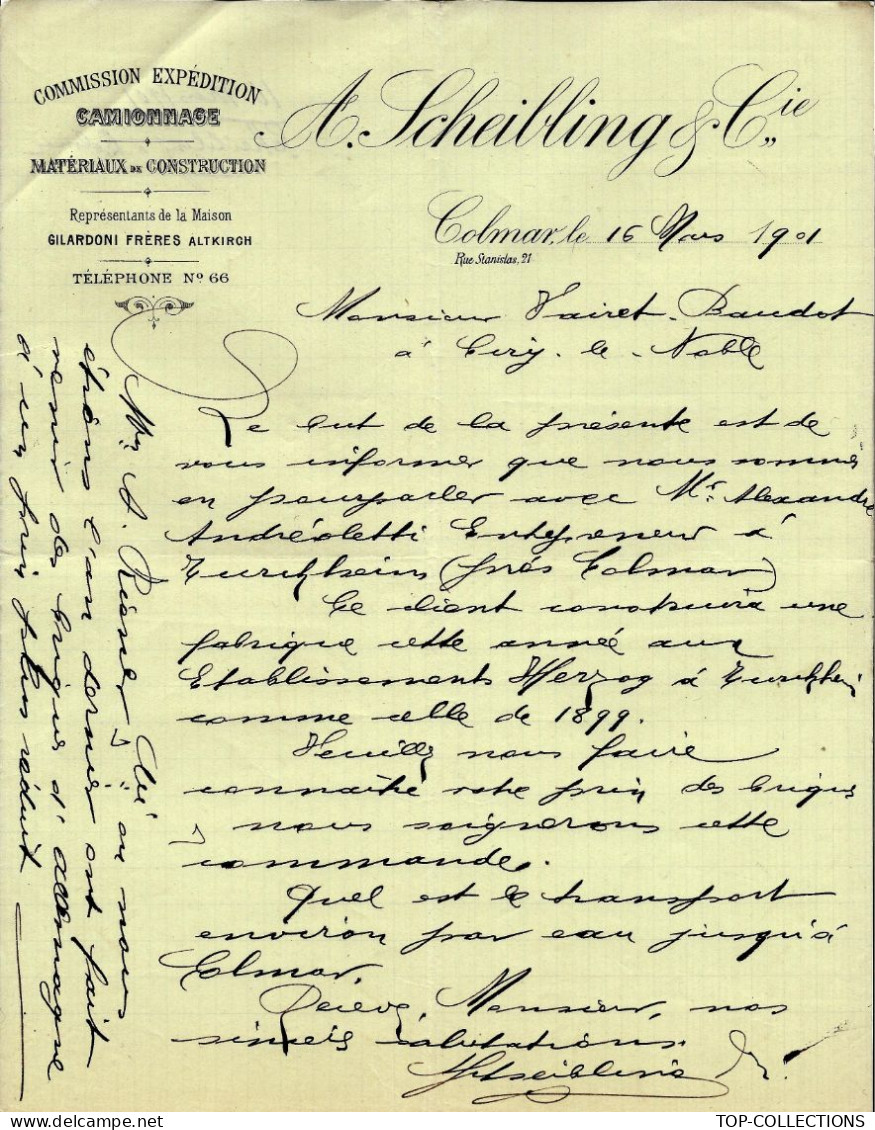 COMMISSION EXPÉDITION
CAMIONNAGE
MATÉRIAUX DE CONSTRUCTION
Représentants de la Maison
GILARDONI FRÈRES ALTKIRCH
TÉLÉPHONE Nº 66
A. Scheibling & Cie
Colmar, le 16 Mars 1901
Rue Stanislas, 21
Monsieur Vairet-Baudot
à Ciry-le-Noble
Le but de la présente est de
vous informer que nous sommes
en pourparler avec Mr. Alexandre
Andréoletti Entrepreneur à
Turckheim (près Colmar)
Ce client construira une
fabrique cette année aux
Etablissements Herzog à Turckheim
comme celle de 1899.
Veuillez nous faire
connaître votre prix des briques
nous soignerons cette
commande.
Quel est le transport
environ par eau jusqu'à
Colmar.
Recevez, Monsieur, nos
sincères salutations.
AScheibling
Mrs A. Kiener & Cie où nous
étions l'an dernier ont fait
venir des briques d'Allemagne
d'un prix plus réduit
TOP-COLLECTIONS